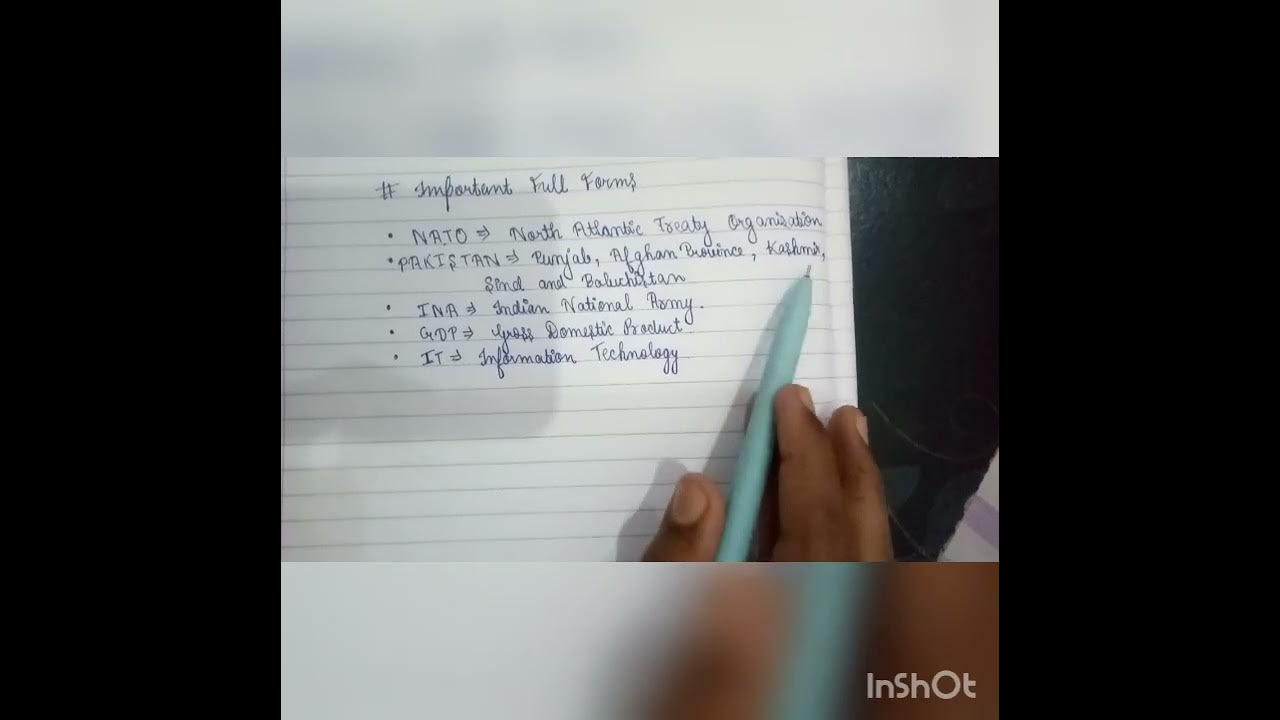 # Important Full Forms
• NATO ⇒ North Atlantic Treaty Organisation
• PAKISTAN ⇒ Punjab, Afghan Province, Kashmir,
Sind and Baluchistan
• INA ⇒ Indian National Army.
• GDP ⇒ Gross Domestic Product.
• IT ⇒ Information Technology
InShOt